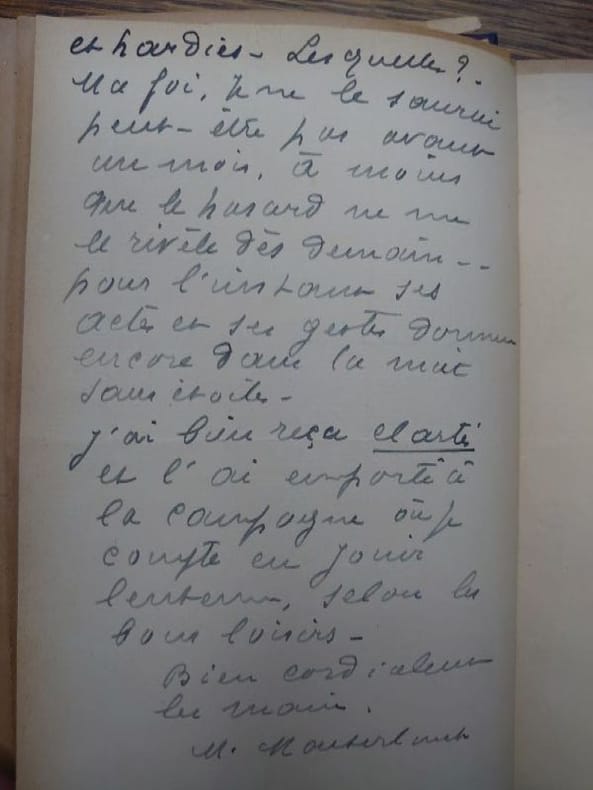 et hardies - Lesquelles ? -
Ma foi, je ne le saurai
peut-être pas avant
un mois, à moins
que le hasard ne me
le rivèle dès demain - -
pour l'instant ses
actes et ses gestes dorment
encore dans la nuit
sans étoiles -
j'ai bien reçu Clarté
et l'ai emporté à
la campagne où je
compte en jouir
lentemt, selon les
bons loisirs -
Bien cordialement
les mains.
M.